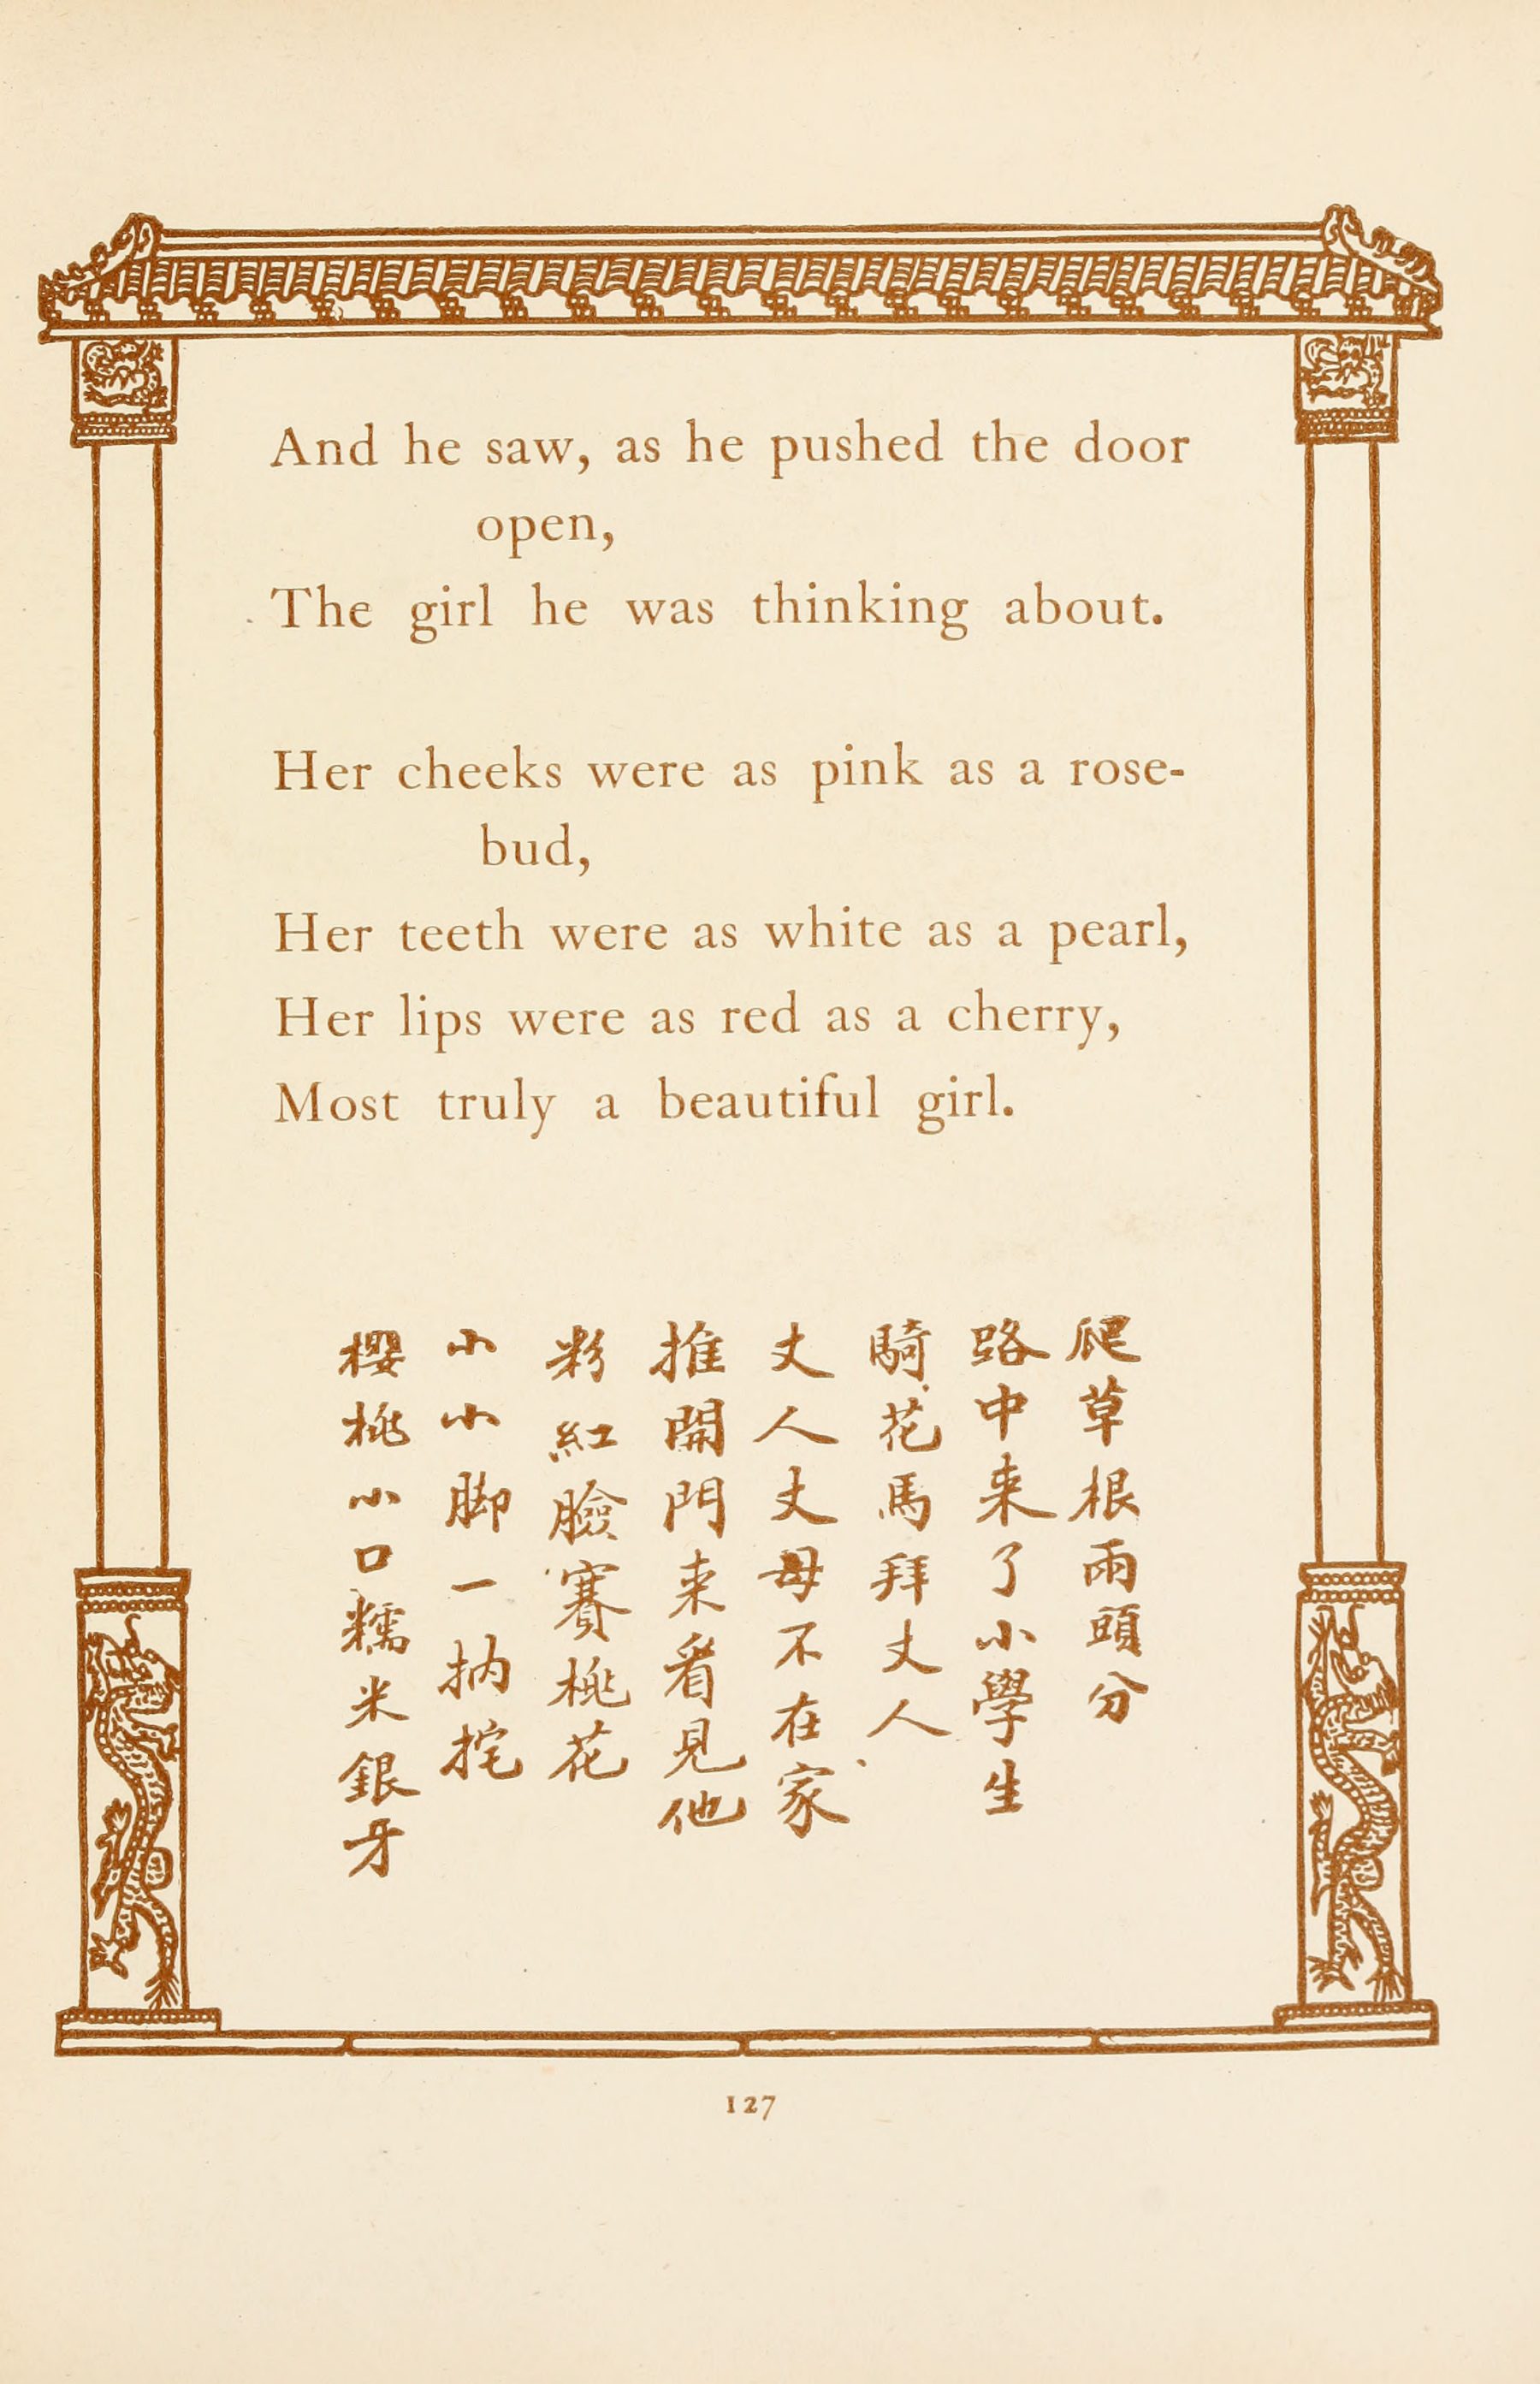 And he saw, as he pushed the door
open,
The girl he was thinking about.
Her cheeks were as pink as a rose-
bud,
Her teeth were as white as a pearl,
Her lips were as red as a cherry,
Most truly a beautiful girl.
爬草根兩頭分
路中来了小學生
騎花馬拜丈人
丈人丈母不在家
推開門来看見他
粉紅臉賽桃花
小小脚一抐挓
櫻桃小口糯米銀牙
127